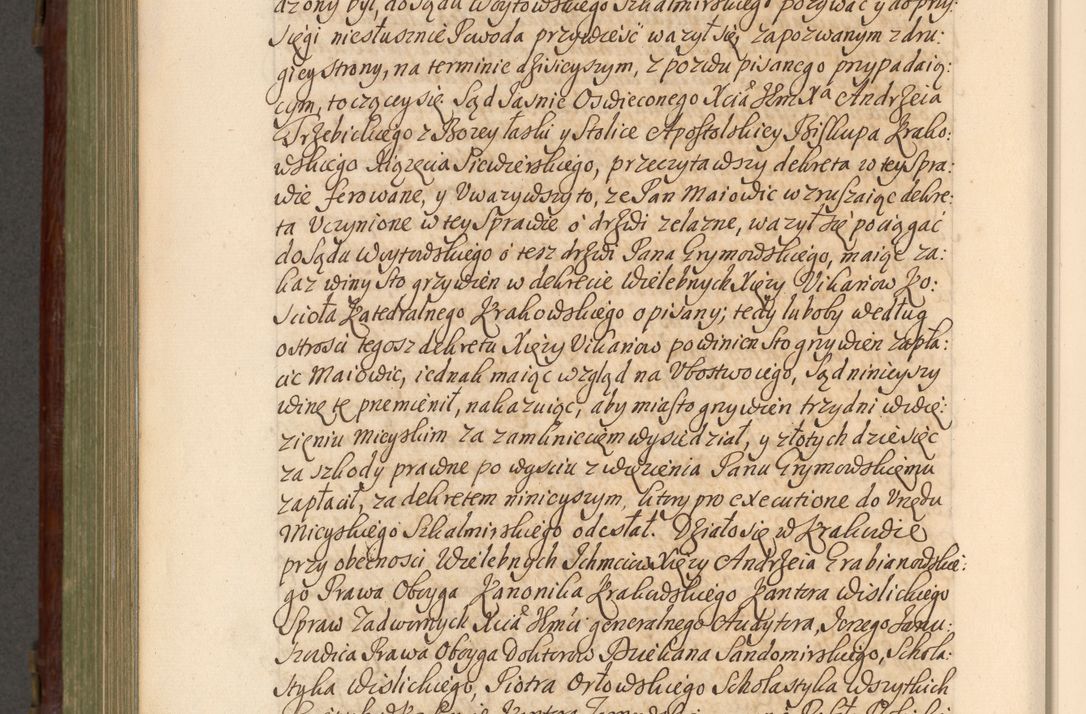 dzony był, do Sądu Woytowskiego Szkalmirskiego pozywać y do przy:
Sięgi niesłusznie Powoda przywieść ważył się, zapozwanym z dru:
giey strony, na terminie dzisieyszym, z pozwu pisanego przypadaią:
cym, toczącey się. Sąd Jasnie Oswieconego Xcia Jłm Xa Andrzeia
Trzebickiego z Bożey łaski y Stolice Apostolskiey Biskupa Krako:
wskiego Xiązęcia Siewierskiego, przeczytawszy dekreta w tey Spra:
wie ferowane, y Uwazywszy to, ze Pan Maiowic wzruszaiąc dekre:
ta Uczynione w tey Sprawie o drzwi zelazne, ważył się pociągać
do Sądu Woytowskiego o tesz drzwi Pana Grymowskiego, maiąc za:
kaz winy Sto grzywien w dekrecie Wielebnych Xięży Vikariow Ko:
scioła Katedralnego Krakowskiego opisany; tedy luboby według
ostrosci tegosz dekretu Xięży Vikariow powinien Sto grzywien zapła:
cic Maiowic, iednak maiąc wzgląd na Ubostwo iego, Sąd ninieyszy
winę tę przemienił, nakazuiąc, aby miasto grzywien trzy dni w wię:
zieniu mieyskim za zamknieciem wysiedział, y złotych dziesięć
za szkody prawne po wysciu z więzienia Panu Grymowskiemu
zapłacił, za dekretem ninieyszym, ktory pro executione do Urzędu
Mieyskiego Szkalmirskiego odesłał. Działo się w Krakowie
przy obecnosci Wielebnych Jchmciow Xięży Andrzeia Grabianowskie:
go Prawa Oboyga Kanonika Krakowskiego Kantora Wislickiego
Spraw Zadwornych Xcia Jłmci generalnego Audytora, Jerzego
Prawa Oboyga Doktorow Dziekana Sandomirskiego, Schola:
styka Wislickiego, Piotra Orłowskiego Scholastyka Wszytkich